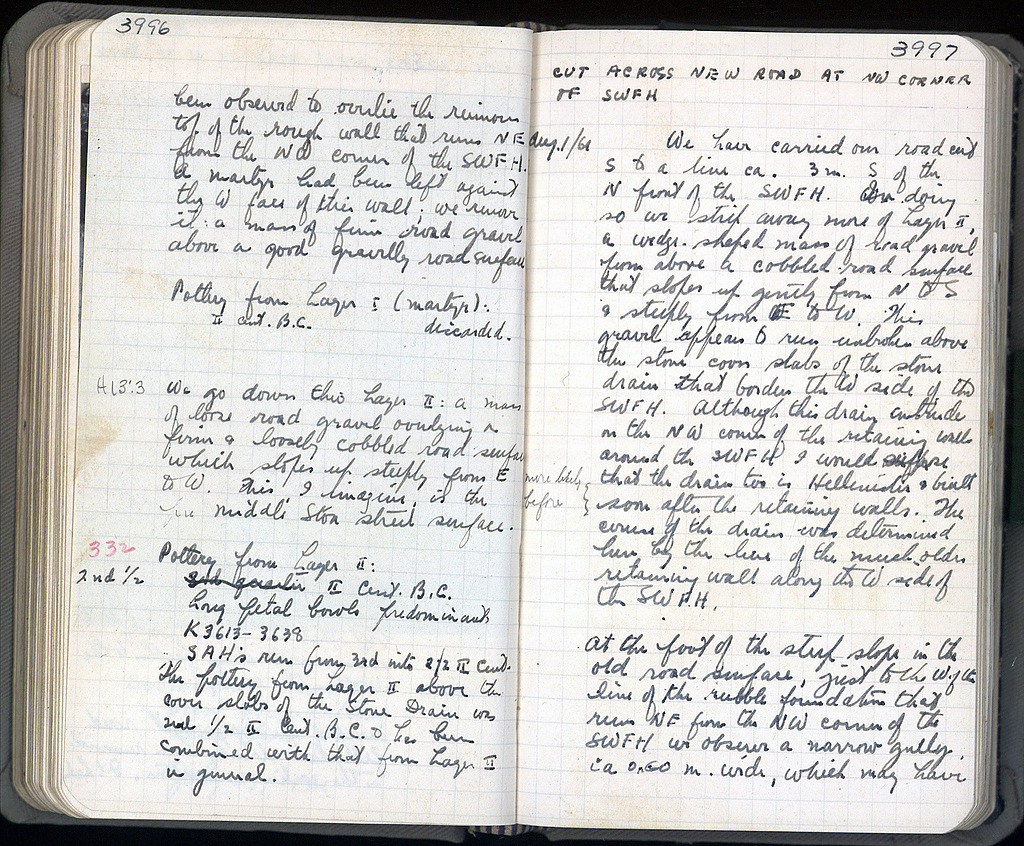 3996
been observed to overlie the ruinous
top of the rough wall that runs NE
from the NW corner of the SWFH.
A martyr had been left against
the W face of this wall; we remove
it: a mass of firm road gravel
above a good gravelly road surface
Pottery from Layer I (martyr):
II cent. B.C. discarded.
H13:3 We go down thru Layer II: a mass
of loose road gravel overlying a
firm & loosely cobbled road surface
which slopes up steeply from E
to W. This, I imagine, is the
pre Middle Stoa street surface.
332
Pottery from Layer II:
2nd 1/2 II Cent. B.C.
Long petal bowls predominant
K3613-3638
SAH's run from 3rd into 2/2 II Cent.
The pottery from Layer II above the
cover slabs of the Stone Drain was
2nd 1/2 II Cent. B.C. & has been
combined with that from Layer II
in general.
3997
CUT ACROSS NEW ROAD AT NW CORNER
OF SWFH
Aug. 1/61 We have carried our road cut
S to a line ca. 3 m. S of the
N front of the SWFH. In doing
so we strip away more of Layer II,
a wedge-shaped mass of road gravel
from above a cobbled road surface
that slopes up gently from N to S
& steeply from E to W. This
gravel appears to run unbroken above
the stone cover slabs of the stone
drain that borders the W side of the
SWFH. Although this drain intrude
on the NW corner of the retaining walls
around the SWFH I would suppose
that the drain too is Hellenistic & built
more likely before { soon after the retaining walls. The
course of the drain was determined
here by the line of the much older
retaining wall along the W side of
the SWFH.
At the foot of the steep slope in the
old road surface, just to the W of the
line of the rubble foundation that
runs NE from the NW corner of the
SWFH we observe a narrow gulley
ca 0.60 m. wide, which may have